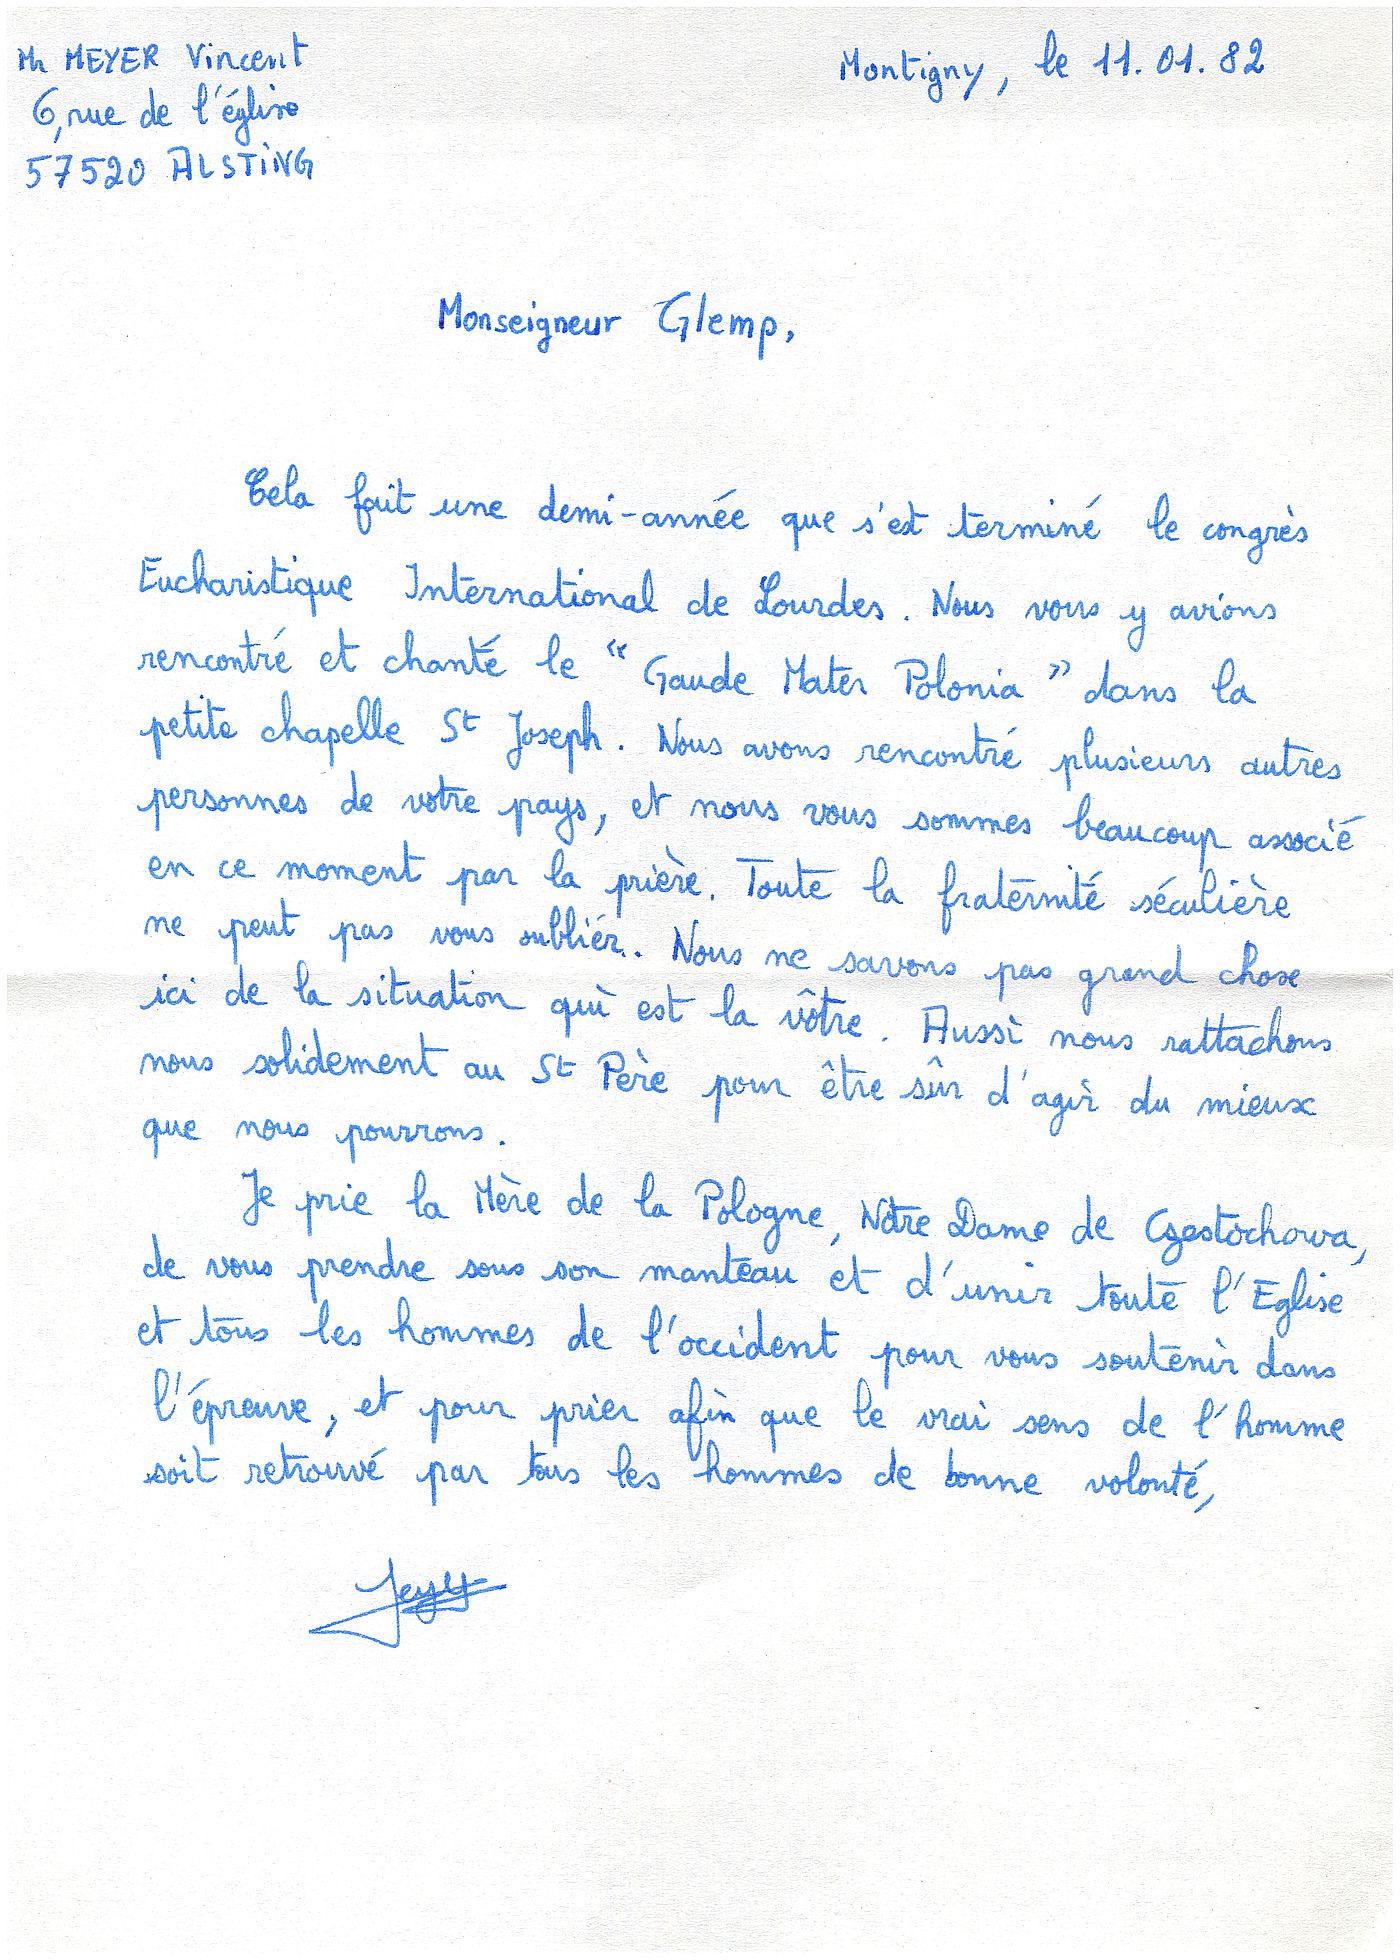 Mr MEYER Vincent
Montigny, le 11.01.82
6, rue de l'église
57520 ALSTING
Monseigneur Glemp,
Cela fait une demi-année que s'est terminé le congrès
Eucharistique International de Lourdes. Nous vous y avions
rencontré et chanté le "Gaude Mater Polonia" dans la
petite chapelle St Joseph. Nous avons rencontré plusieurs autres
personnes de votre pays, et nous vous sommes beaucoup associé
en ce moment par la prière. Toute la fraternité séculière
ne peut pas vous oublier. Nous ne savons pas grand chose
ici de la situation qui est la vôtre. Aussi nous rattachons
nous solidement au St Père pour être sûr d'agir du mieux
que nous pourrons.
Je prie la Mère de la Pologne, Notre Dame de Czestochowa,
de vous prendre sous son manteau et d'unir toute l'Eglise
et tous les hommes de l'occident pour vous soutenir dans
l'épreuve, et pour prier afin que le vrai sens de l'homme
soit retrouvé par tous les hommes de bonne volonté,